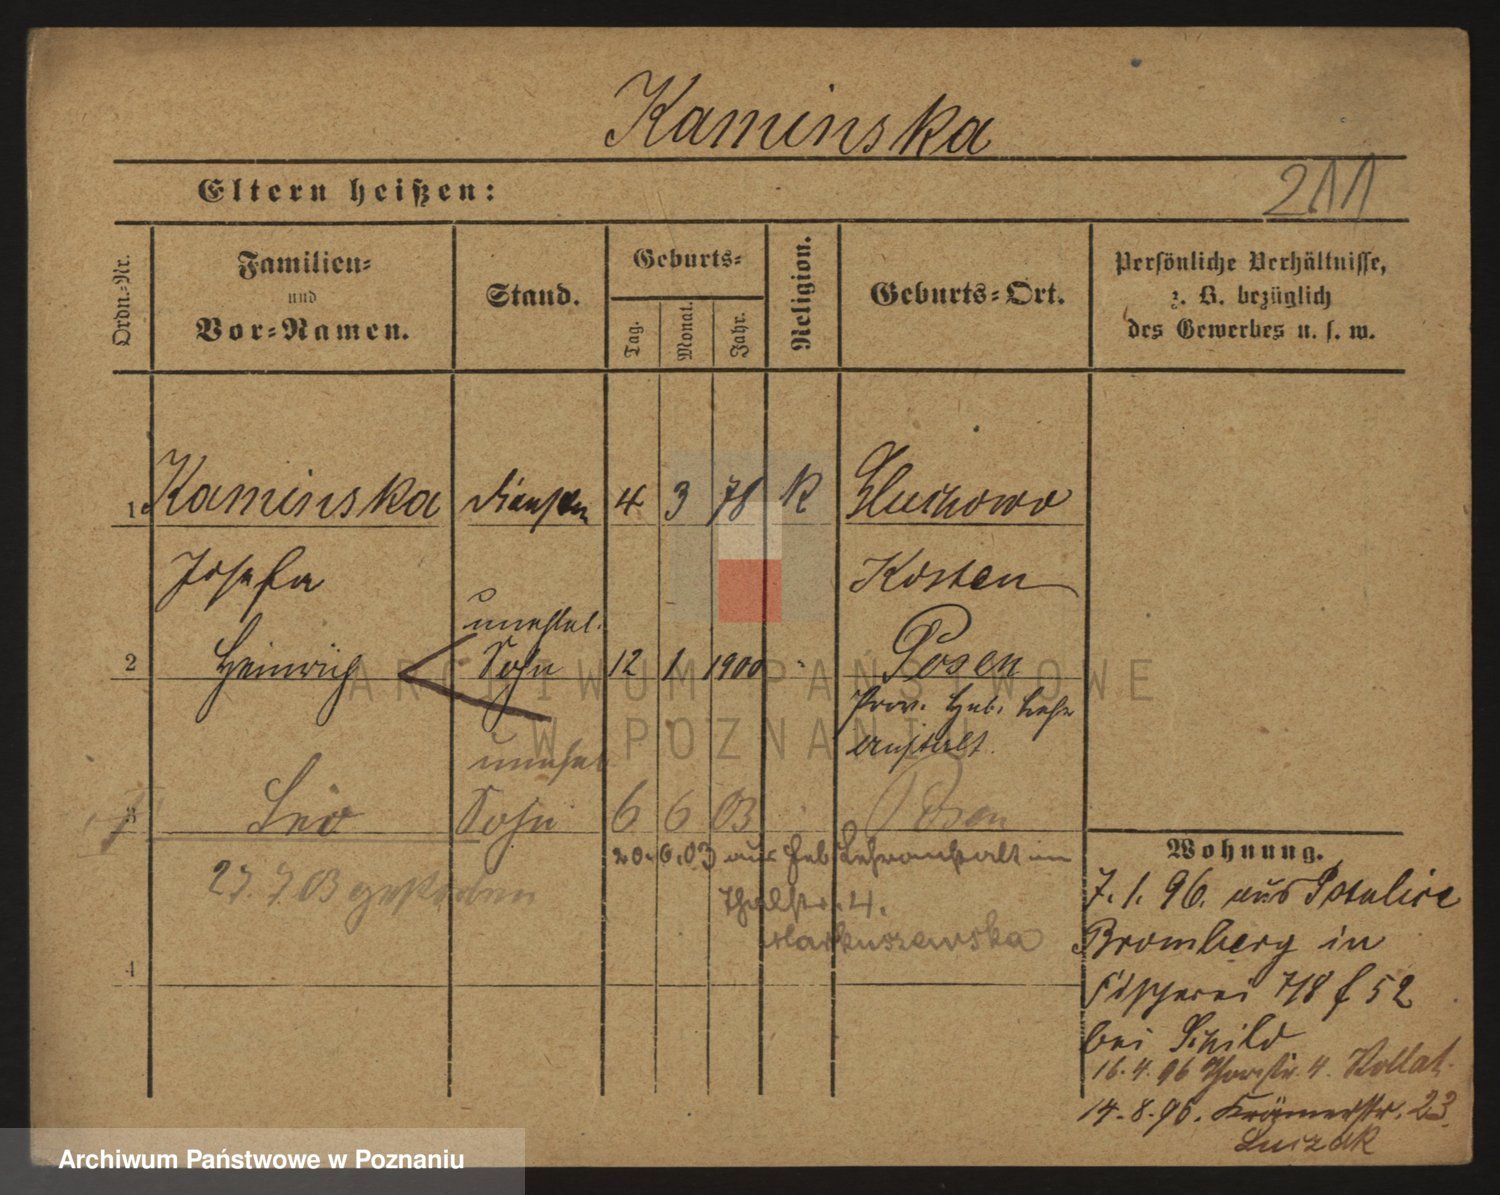 Kaminska
Eltern heißen:
211
Ordn.-Nr.
Familien-
und
Vor-Namen.
Stand.
Geburts-
Tag.
Monat.
Jahr.
Religion.
Geburts-Ort.
Persönliche Verhältnisse,
z. B. bezüglich
des Gewerbes u. s. w.
1. Kaminska 4 3 78 K
Josefa Kosten
unehel.
2 Heinrich Sohn 12 1 1900 " Posen
Prov. Heb. Lehr
anstalt.
unehel
3 Leo Sohn 6 6 03 Posen
20.6.03 aus Heb Lehranstalt in
27.7.03 gestorben
4.
Markuszewska
4
Wohnung.
7. 1. 96. aus Potulice
Bromberg in
Fischerei 7/8 f 52
bei Schild
16. 4. 96 4. Kollat.
14. 8. 96. Krämerstr. 23.
Luczak
ARCHIWUM PAŃSTWOWE
W POZNANIU
Archiwum Państwowe w Poznaniu